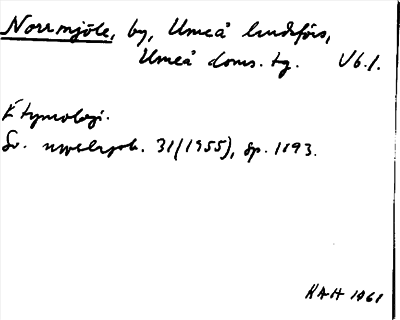 Norrmjöle, by, Umeå landsförs,
Umeå doms. tg. Vb.l.
Etymologi.
Sv. uppslagsb. 31(1955), sp. 1193.
KAH 1961